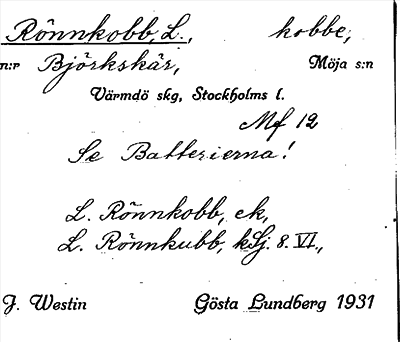 Rönnkobb, L., kobbe,
n:r Björkskär, Möja s:n
Värmdö skg, Stockholms l.
Mf 12
Se Batterierna!
L. Rönnkobb, ek,
L. Rönnkubb, kSj. 8. VI.,
J. Westin Gösta Lundberg 1931